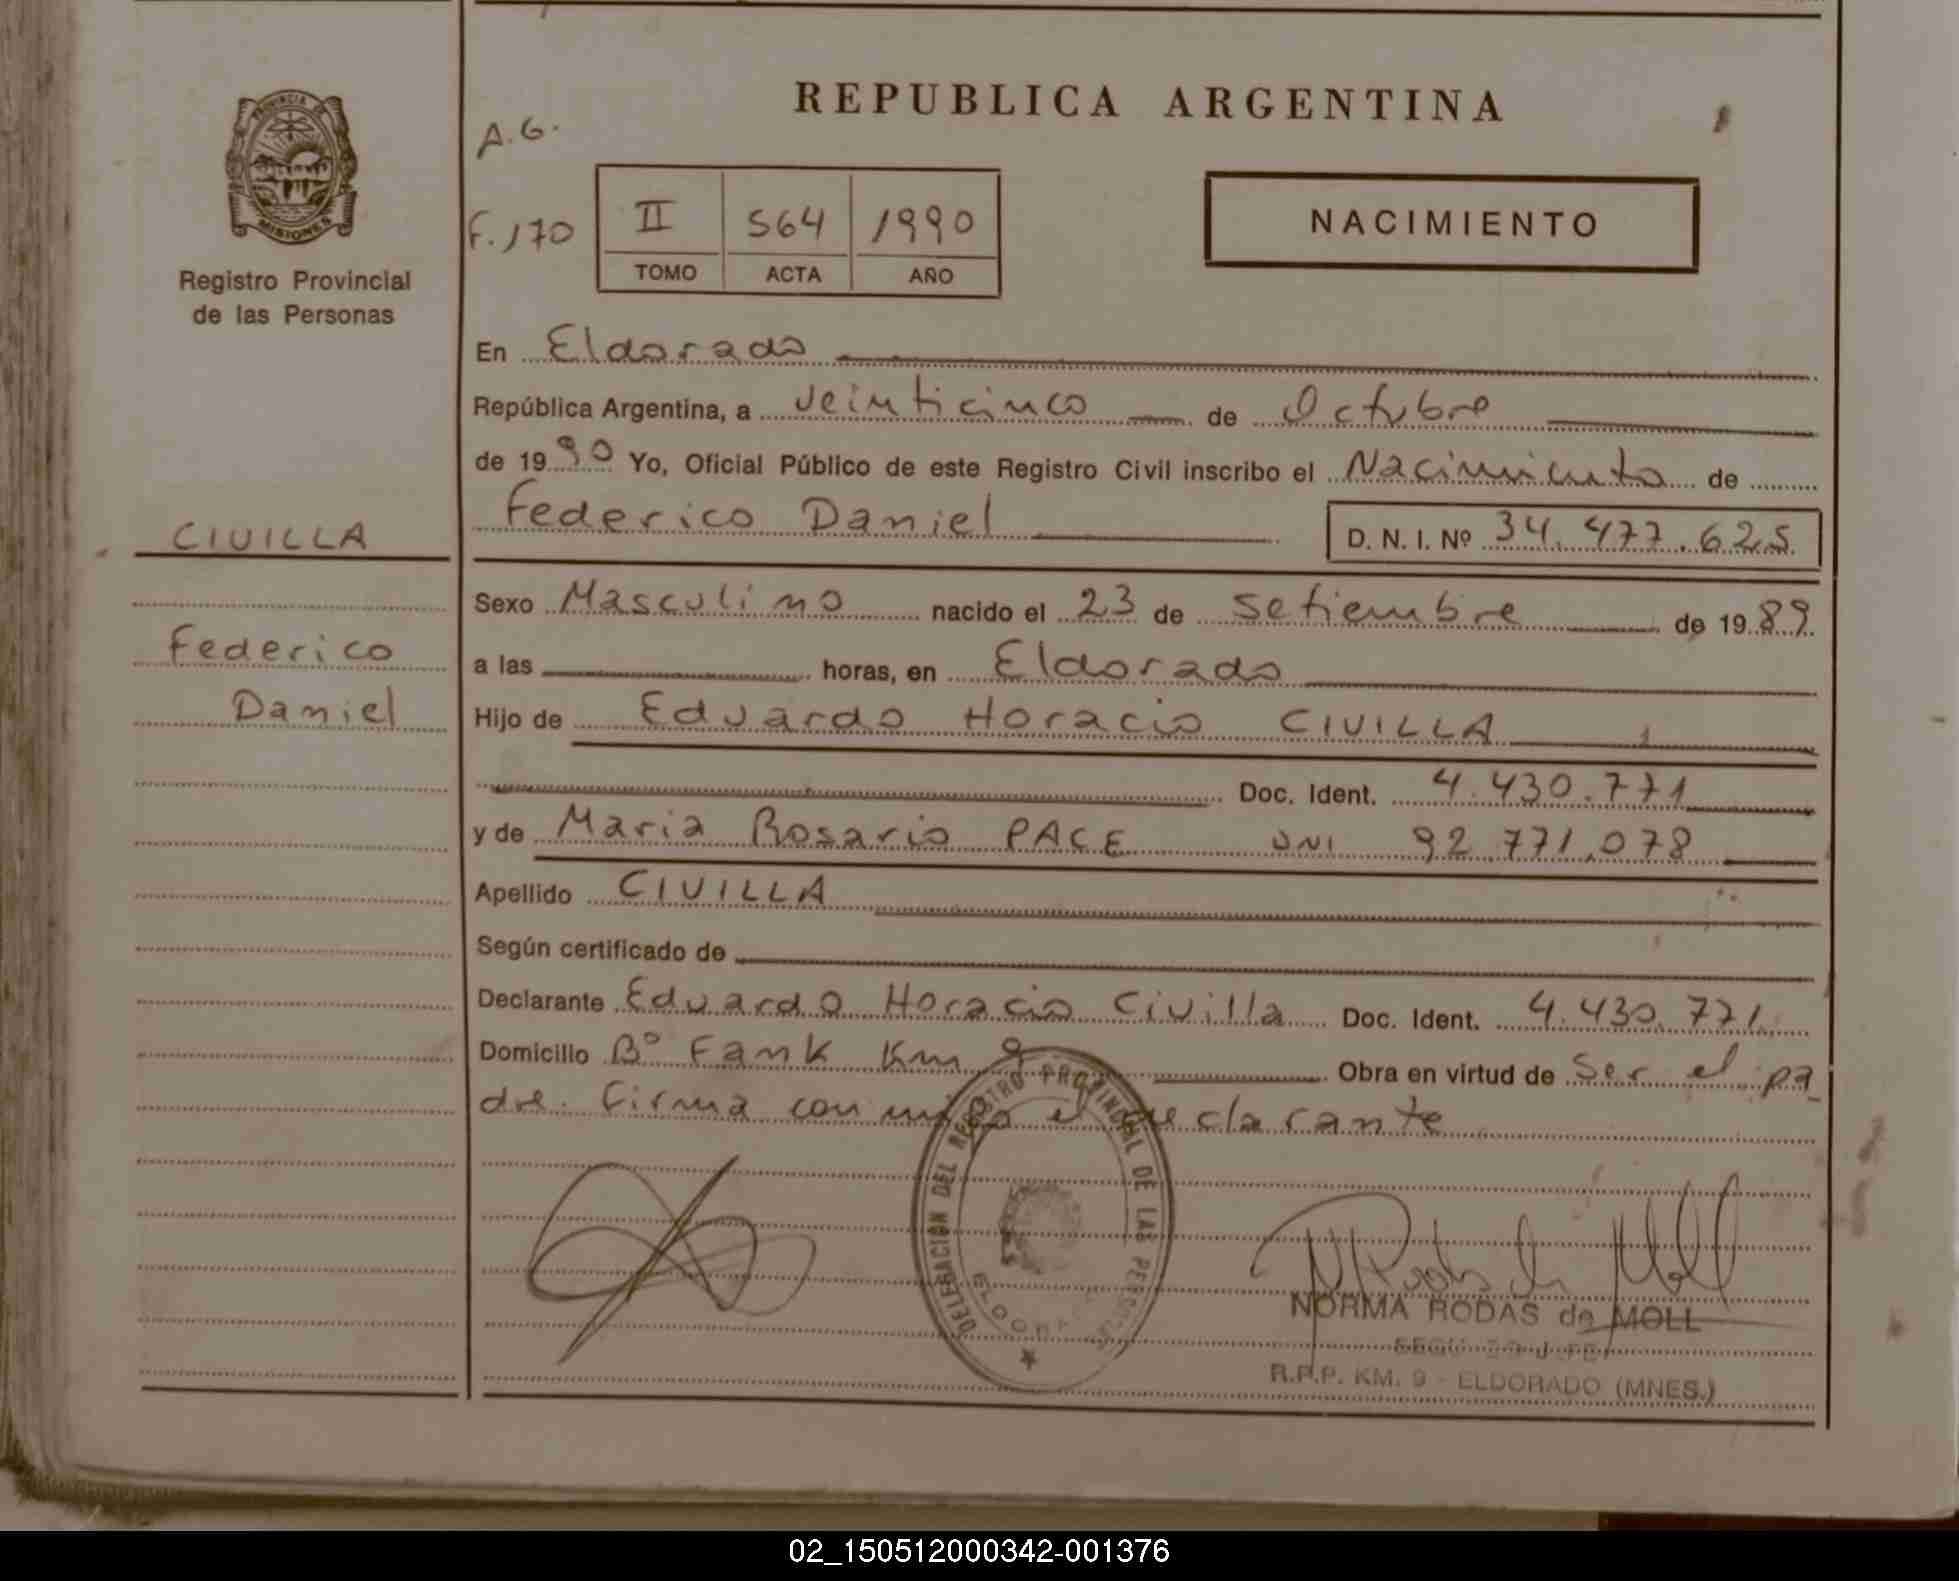 REPUBLICA ARGENTINA
A.G.
F. 170
II 564 1990
TOMO ACTA AÑO
NACIMIENTO
PROVINCIA DE
MISIONES
Registro Provincial
de las Personas
CIVILLA
Federico
Daniel
En Eldorado
República Argentina, a veinticinco de Octubre
de 1990 Yo, Oficial Público de este Registro Civil inscribo el Nacimiento de
Federico Daniel D. N. I. Nº 34.477.625
Sexo Masculino nacido el 23 de Setiembre de 1989
a las horas, en Eldorado
Hijo de Eduardo Horacio CIVILLA
Doc. Ident. 4.430.771
y de Maria Rosario PACE DNI 92.771.078
Apellido CIVILLA
Según certificado de
Declarante Eduardo Horacio Civilla Doc. Ident. 4.430.771
Domicilio Bº Fank Km 9 Obra en virtud de Ser el pa
dre. Firma conmigo el declarante
DELEGACION DEL REGISTRO PROVINCIAL DE LAS PERSONAS
ELDORADO
NORMA RODAS de MOLL
R.P.P. KM. 9 - ELDORADO (MNES.)
02_150512000342-001376